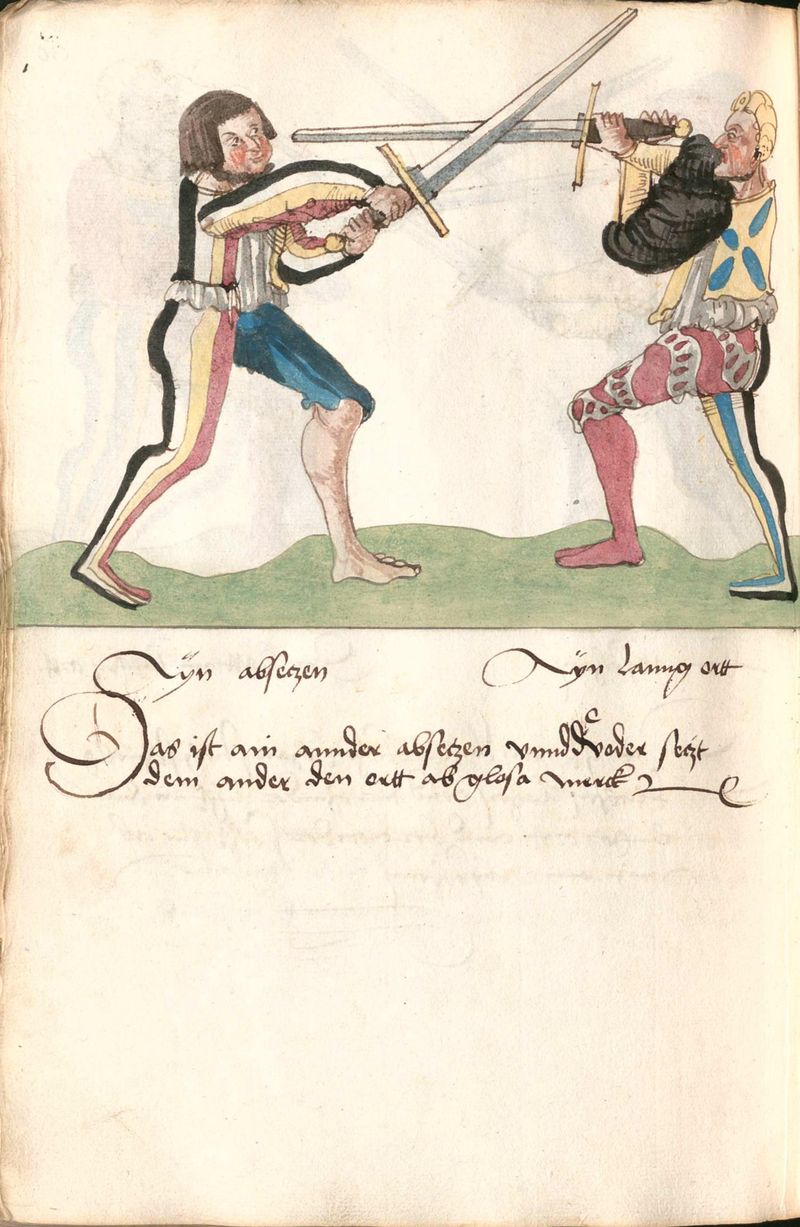 Ayn absetzen
Ayn lanng ortt
Das ist ain annder absetzen vnnd der voder setzt
dem ander den ortt ab glosa merck